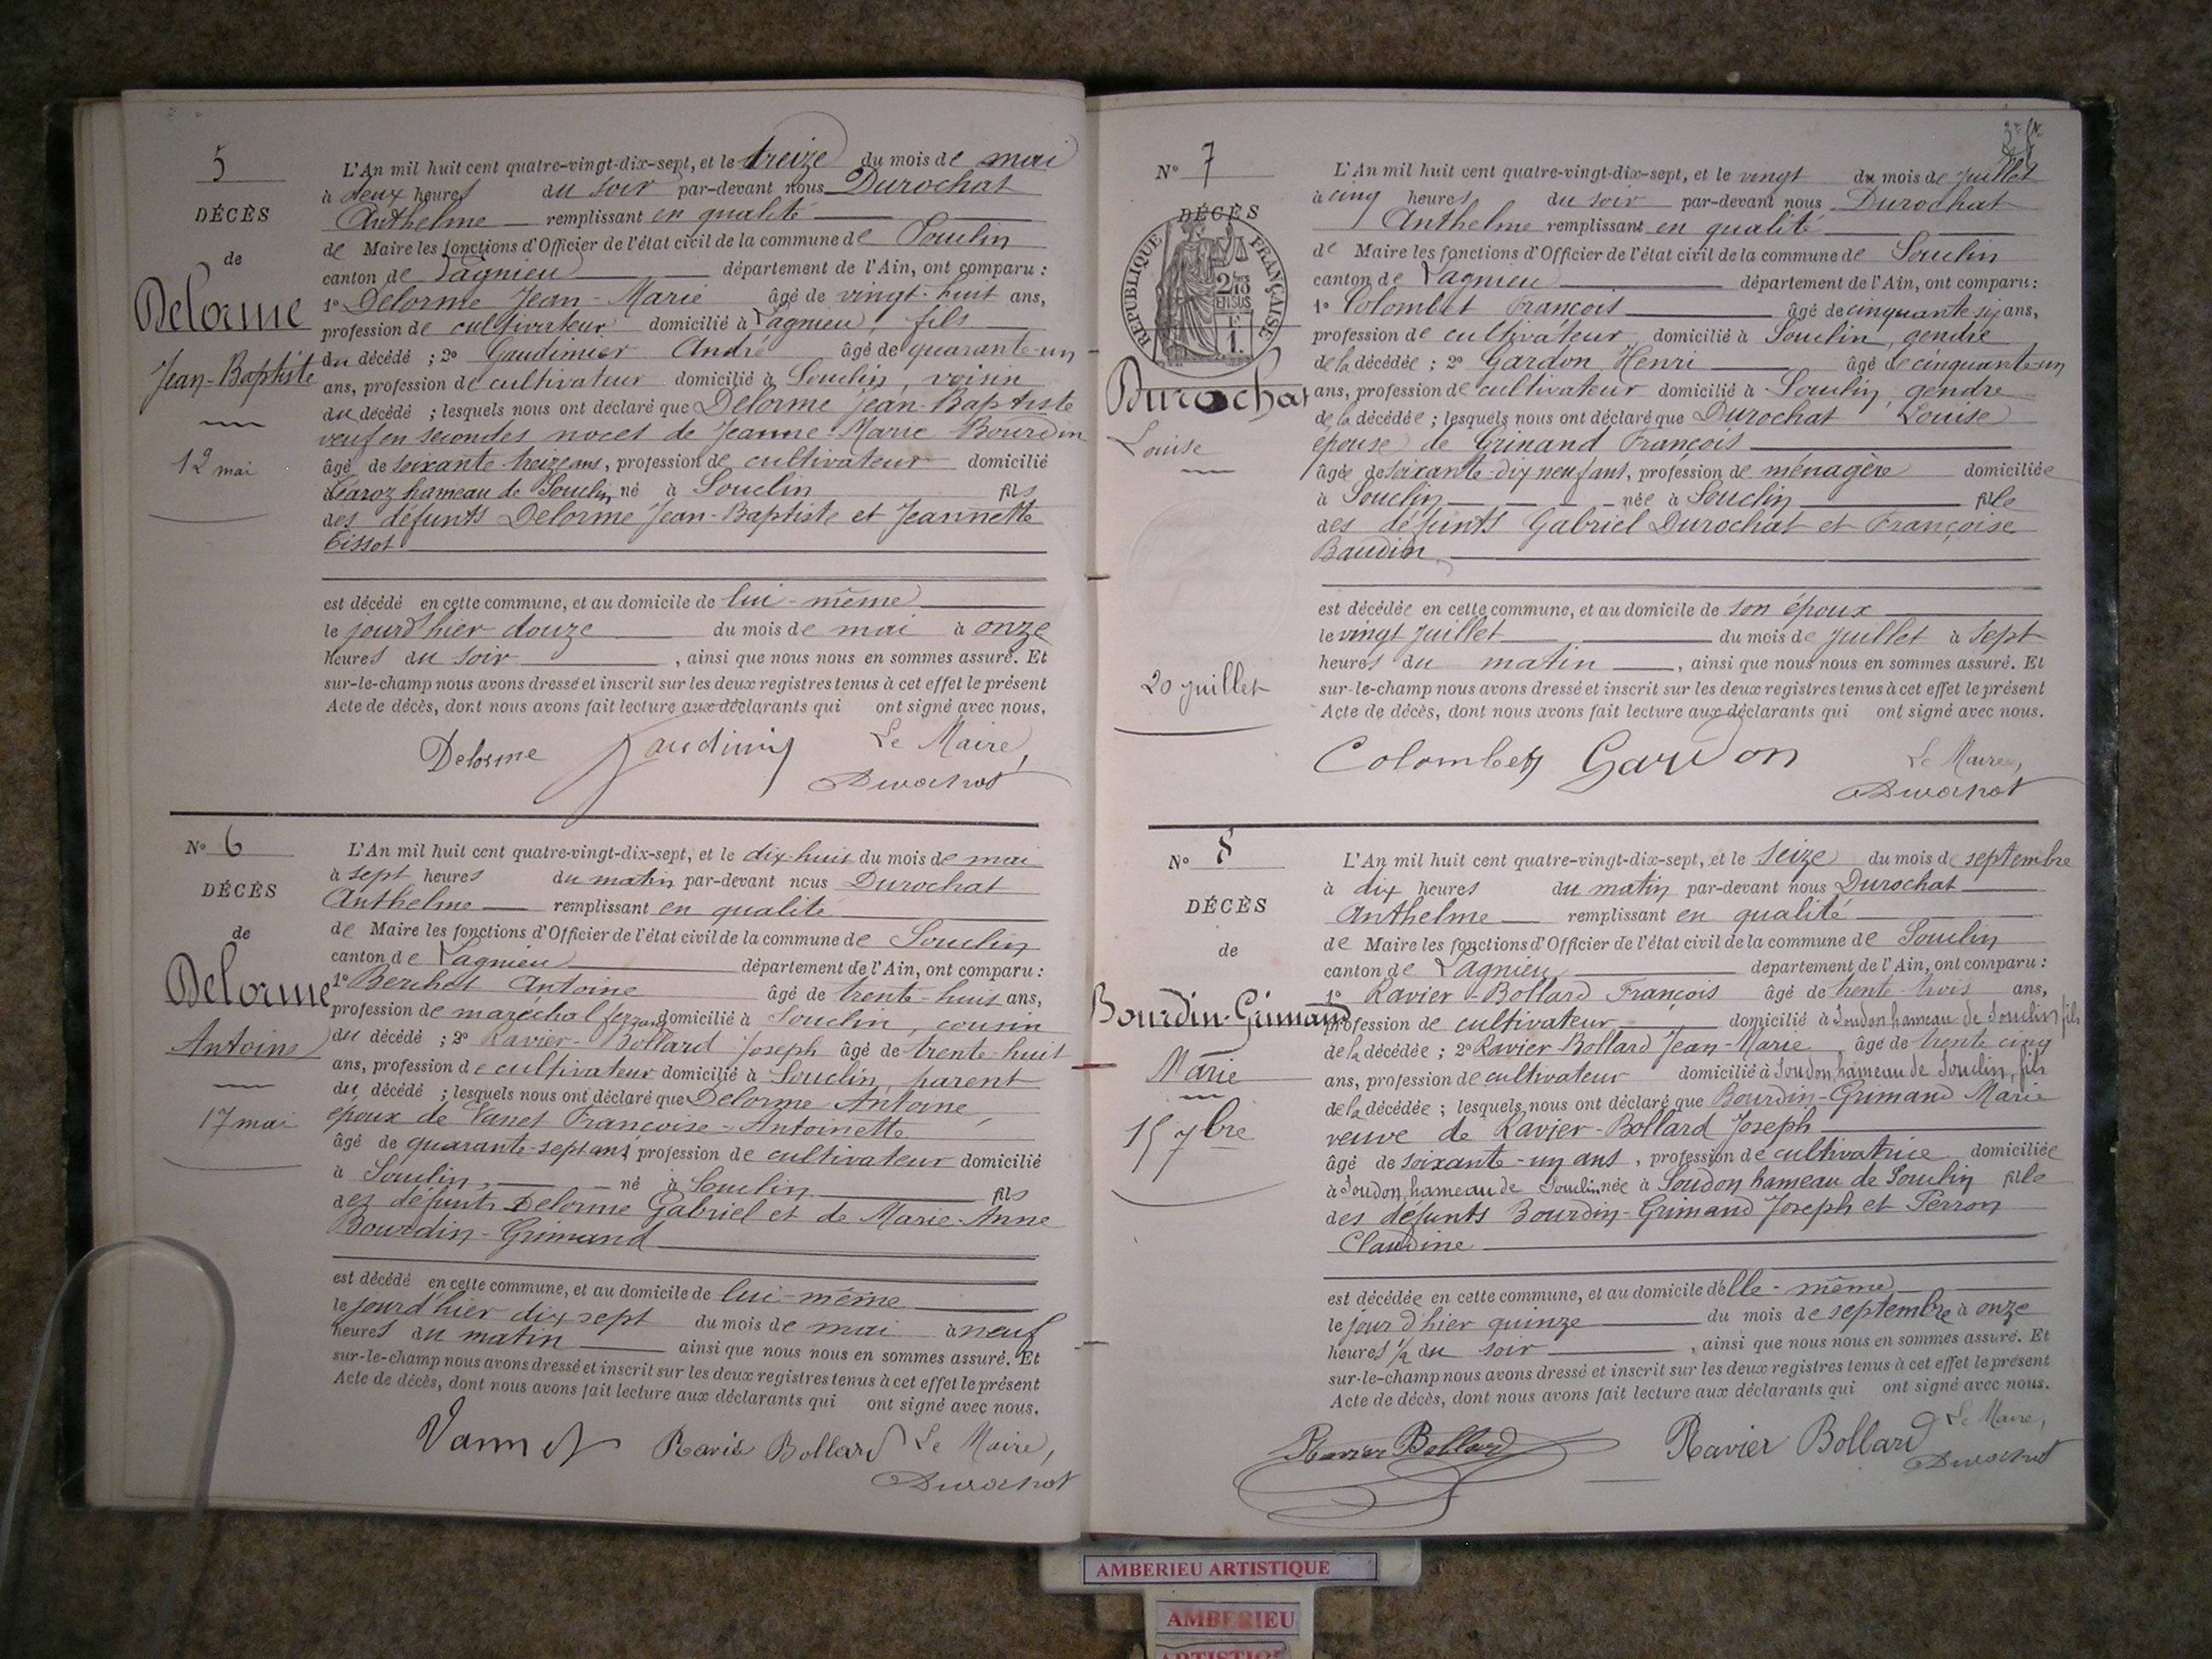 5
DÉCÈS
de
Delorme
Jean-Baptiste
12 mai
L'An mil huit cent quatre-vingt-dix-sept, et le treize du mois de mai
à deux heures du soir par-devant nous Durochat
Anthelme remplissant en qualité
de Maire les fonctions d'Officier de l'état civil de la commune de Souclin
canton de Lagnieu département de l'Ain, ont comparu :
1° Delorme Jean-Marie âgé de vingt-huit ans,
profession de cultivateur domicilié à Lagnieu, fils
du décédé ; 2° Gaudimier André âgé de quarante-un
ans, profession de cultivateur domicilié à Souclin, voisin
du décédé ; lesquels nous ont déclaré que Delorme Jean-Baptiste
veuf en secondes noces de Jeanne-Marie Bourdin
âgé de soixante-treize ans, profession de cultivateur domicilié
hameau de Souclin né à Souclin fils
des défunts Delorme Jean-Baptiste et Jeannette
Tissot
est décédé en cette commune, et au domicile de lui-même
le jourd'hier douze du mois de mai à onze
heures du soir , ainsi que nous nous en sommes assuré. Et
sur-le-champ nous avons dressé et inscrit sur les deux registres tenus à cet effet le présent
Acte de décès, dont nous avons fait lecture aux déclarants qui ont signé avec nous.
Delorme Le Maire,
Durochat
N° 6
DÉCÈS
de
Delorme
Antoine
17 mai
L'An mil huit cent quatre-vingt-dix-sept, et le dix-huit du mois de mai
à sept heures du matin par-devant nous Durochat
Anthelme remplissant en qualité
de Maire les fonctions d'Officier de l'état civil de la commune de Souclin
canton de Lagnieu département de l'Ain, ont comparu :
1° Berchet Antoine âgé de trente-huit ans,
profession de maréchal ferrant domicilié à Souclin, cousin
du décédé ; 2° Ravier-Bollard Joseph âgé de trente-huit
ans, profession de cultivateur domicilié à Souclin, parent
du décédé ; lesquels nous ont déclaré que Delorme Antoine,
époux de Vanet Françoise-Antoinette
âgé de quarante-sept ans profession de cultivateur domicilié
à Souclin, né à Souclin fils
des défunts Delorme Gabriel et de Marie-Anne
Bourdin-Grimand
est décédé en cette commune, et au domicile de lui-même
le jourd'hier dix sept du mois de mai à neuf
heures du matin ainsi que nous nous en sommes assuré. Et
sur-le-champ nous avons dressé et inscrit sur les deux registres tenus à cet effet le présent
Acte de décès, dont nous avons fait lecture aux déclarants qui ont signé avec nous.
Bollard Le Maire,
Durochat
N° 7
DÉCÈS
RÉPUBLIQUE FRANÇAISE
2/10 EN SUS
1 F.
Durochat
Louise
20 juillet
L'An mil huit cent quatre-vingt-dix-sept, et le vingt du mois de juillet
à cinq heures du soir par-devant nous Durochat
Anthelme remplissant en qualité
de Maire les fonctions d'Officier de l'état civil de la commune de Souclin
canton de Lagnieu département de l'Ain, ont comparu :
1° Colombet François âgé de cinquante six ans,
profession de cultivateur domicilié à Souclin, gendre
de la décédée ; 2° Gardon Henri âgé de cinquante-un
ans, profession de cultivateur domicilié à Souclin, gendre
de la décédée ; lesquels nous ont déclaré que Durochat Louise
épouse de Grinand François
âgée de soixante-dix neuf ans, profession de ménagère domiciliée
à Souclin née à Souclin fille
des défunts Gabriel Durochat et Françoise
Baudin
est décédée en cette commune, et au domicile de son époux
le vingt juillet du mois de juillet à sept
heures du matin , ainsi que nous nous en sommes assuré. Et
sur-le-champ nous avons dressé et inscrit sur les deux registres tenus à cet effet le présent
Acte de décès, dont nous avons fait lecture aux déclarants qui ont signé avec nous.
Colombet Gardon Le Maire,
Durochat
N° 8
DÉCÈS
de
Bourdin-Grimand
Marie
15 7bre
L'An mil huit cent quatre-vingt-dix-sept, et le seize du mois de septembre
à dix heures du matin par-devant nous Durochat
Anthelme remplissant en qualité
de Maire les fonctions d'Officier de l'état civil de la commune de Souclin
canton de Lagnieu département de l'Ain, ont comparu :
1° Ravier-Bollard François âgé de trente-trois ans,
profession de cultivateur domicilié à Soudon hameau de Souclin fils
de la décédée ; 2° Ravier-Bollard Jean-Marie âgé de trente cinq
ans, profession de cultivateur domicilié à Soudon, hameau de Souclin, fils
de la décédée ; lesquels nous ont déclaré que Bourdin-Grimand Marie
veuve de Ravier-Bollard Joseph
âgé de soixante-un ans, profession de cultivatrice domiciliée
à Soudon, hameau de Souclin née à Soudon hameau de Souclin fille
des défunts Bourdin-Grimand Joseph et Perron
Claudine
est décédée en cette commune, et au domicile d'elle-même
le jour d'hier quinze du mois de septembre à onze
heures 1/2 du soir , ainsi que nous nous en sommes assuré. Et
sur-le-champ nous avons dressé et inscrit sur les deux registres tenus à cet effet le présent
Acte de décès, dont nous avons fait lecture aux déclarants qui ont signé avec nous.
Ravier Bollard Ravier Bollard Le Maire,
Durochat
AMBERIEU ARTISTIQUE
AMBERIEU
ARTISTIQUE